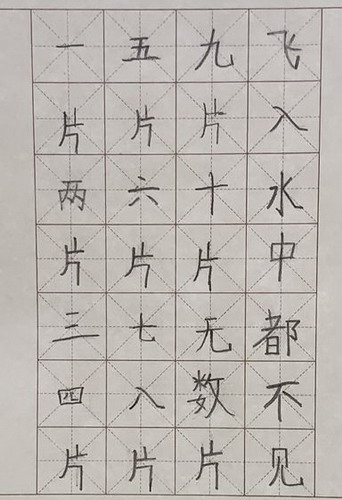 一片两片三四片
五片六片七八片
九片十片无数片
飞入水中都不见